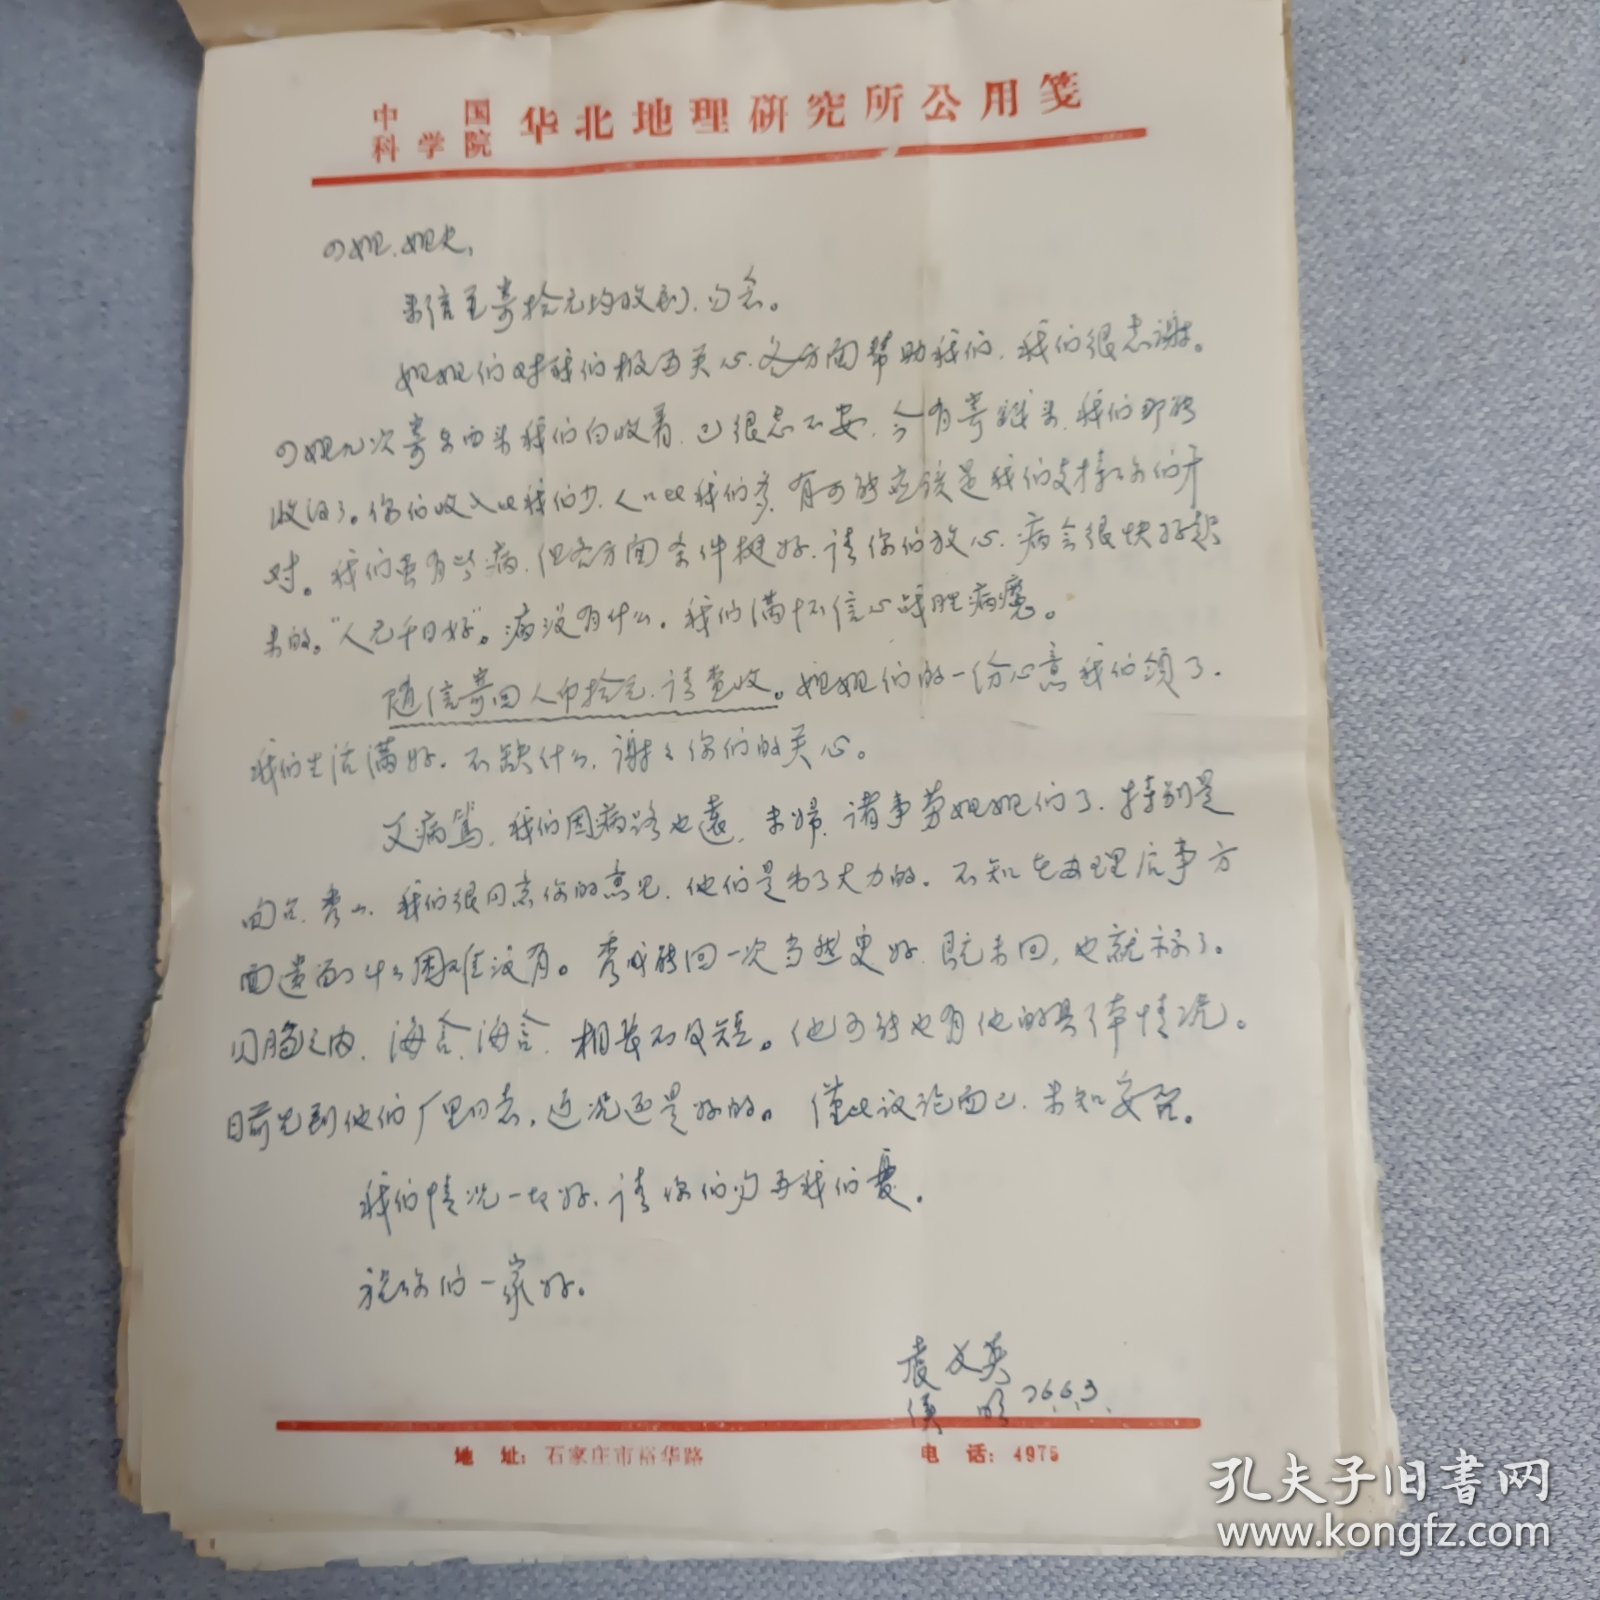 中国科学院 华北地理研究所公用笺
四姐、姐丈,
来信并寄拾元均收到,勿念。
姐姐们对我们极为关心,各方面帮助我们,我们很感谢。
四姐几次寄东西来我们白收着,已很感不安,今有寄钱来,我们那能
收得了。你们收入比我们少,人口比我们多,有可能应该是我们支持你们才
对。我们虽有些病,但各方面条件挺好,请你们放心,病会很快好起
来的。“人无千日好”。病没有什么,我们满怀信心战胜病魔。
随信寄回人币拾元,请查收。姐姐们的一份心意我们领了,
我们生活满好,不缺什么,谢谢你们的关心。
父病笃,我们因病路也远,未归,诸事劳姐姐们了,特别是
秀山,我们很同意你的意见,他们是出了大力的。不知在办理后事方
面遇到什么困难没有。秀成能回一次当然更好,既未回,也就算了。
同胞之内,海含海含,相长不及短。他可能也有他的具体情况。
日前见到他们厂里同志,近况还是好的。仅此议论而已,未知妥否。
我们情况一切好,请你们勿再我们忧。
祝你们一家好。
文英
明 76.6.3.
地 址:石家庄市裕华路
电 话:4975
孔夫子旧书网
www.kongfz.com